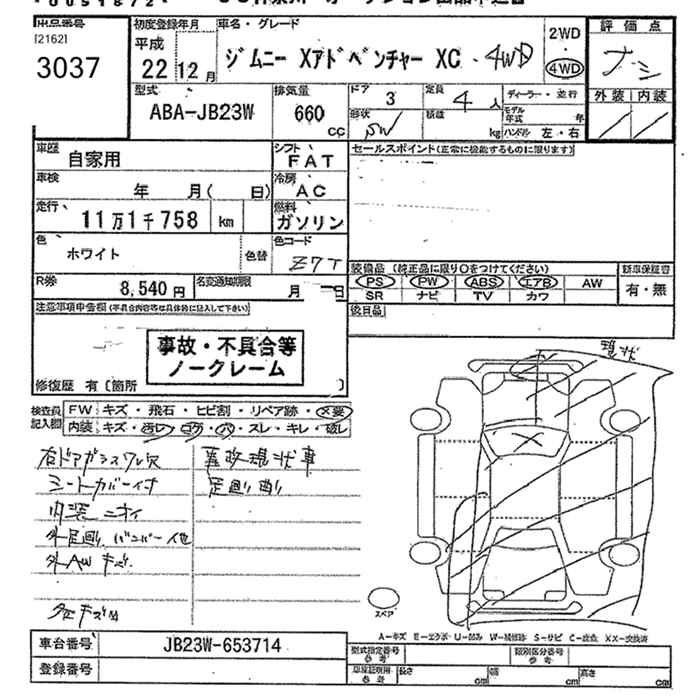 出品番号
[2162]
3037
初度登録年月
平成
22 12 月
車名・グレード
ジムニー XアドベンチャーXC 4WD
2WD
・
4WD
評価点
ナシ
外装 内装
型式
ABA-JB23W
排気量
660
CC
ドア
3
定員
4 人
ディーラー・並行
形状
積載
kg
モデル年式 年
ハンドル 左・右
車歴
自家用
シフト
FAT
車検
年 月( 日)
冷房
AC
走行
11万1千758 km
燃料
ガソリン
色
ホワイト
色替
色コード
Z7T
R券
8,540 円
名変通知期限
月 日
セールスポイント(正常に機能するものに限ります)
装備品 (純正品に限り○をつけてください)
PS PW ABS エアB AW
SR ナビ TV カワ
新車保証書
有・無
後日品
注意事項申告欄(不具合内容等は具体的に記入して下さい)
事故・不具合等
ノークレーム
修復歴 有〔箇所 〕
現状
検査員記入欄
FW キズ・飛石・ヒビ割・リペア跡・X要
内装 キズ・汚レ・コゲ・穴・スレ・キレ・破レ
右ドアガラスワレ穴
シートカバー付
内装ニオイ
外AWキズ
事故現状車
スペア
A-キズ E-エクボ U-凹み W-補修跡 S-サビ C-腐食 XX-交換済
車台番号
JB23W-653714
登録番号
型式指定番号
参考
類別区分番号
参考
長さ cm
幅 cm
高さ cm